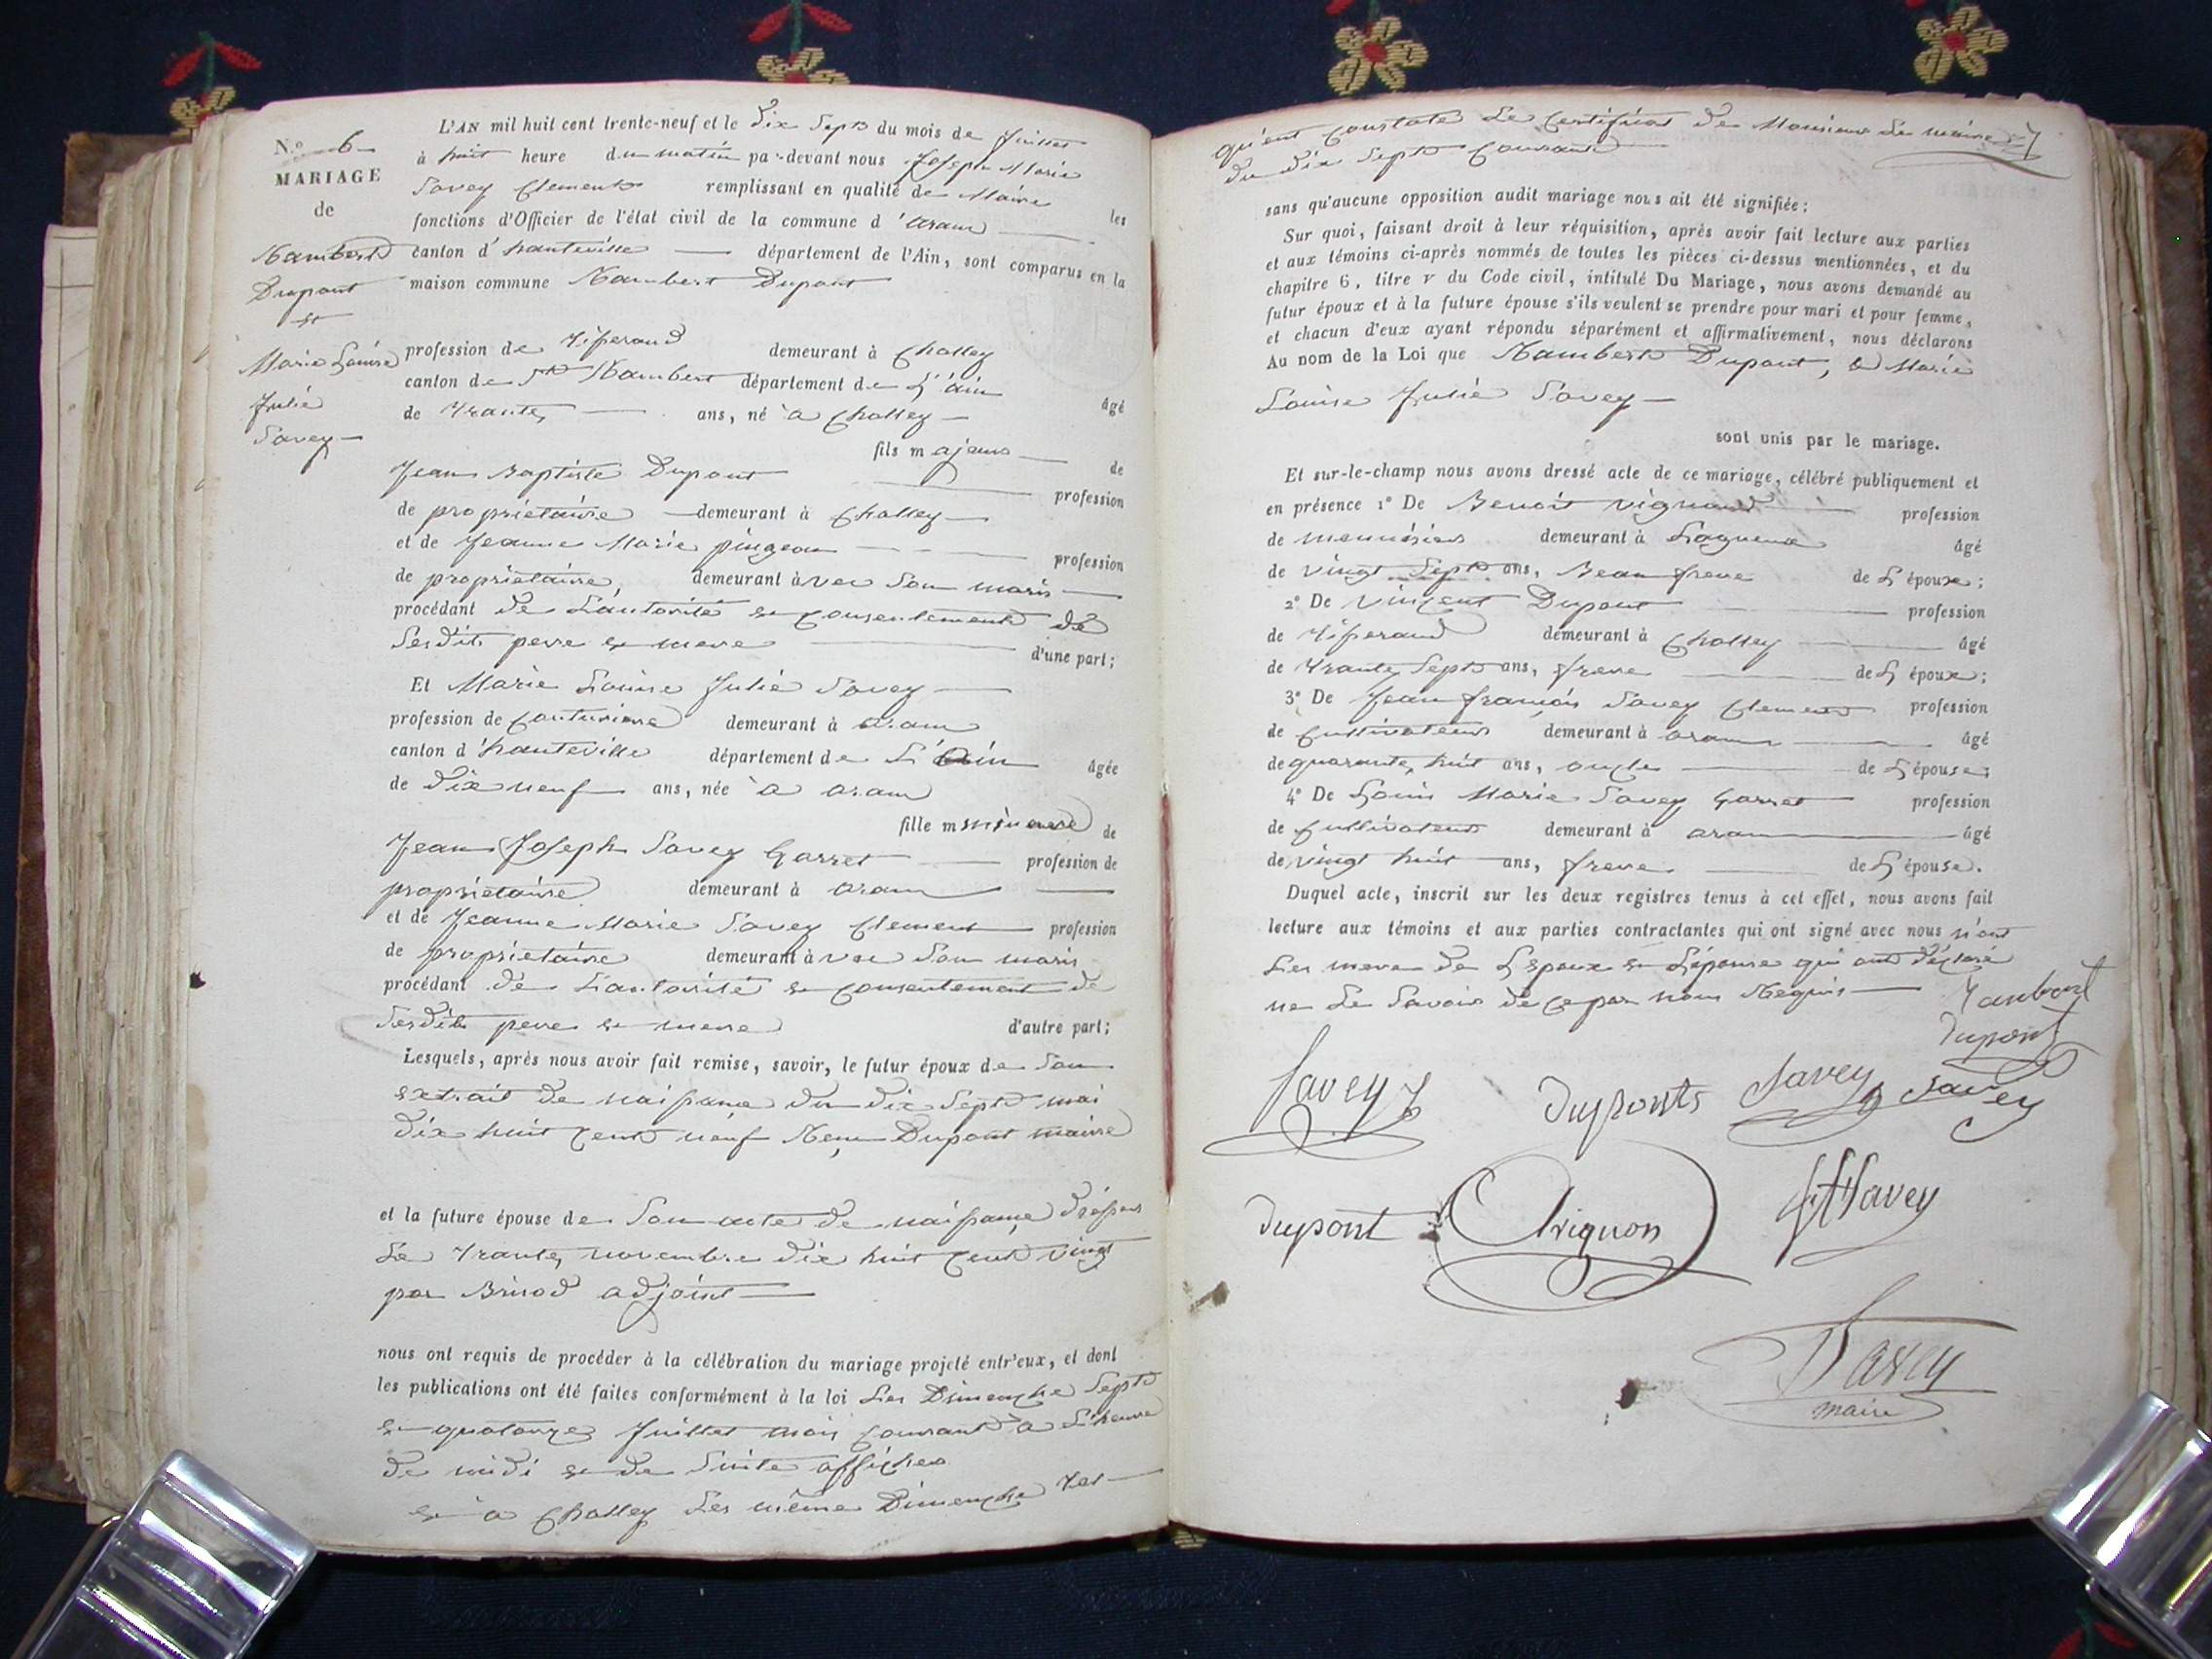 N.o 6
MARIAGE
de
Rambert
Dupont
et
Marie Louise
Julie
Savey
L'AN mil huit cent trente-neuf et le dix Sept du mois de Juillet
à huit heure du matin par-devant nous Joseph Marie
Savey Clement remplissant en qualité de Maire les
fonctions d'Officier de l'état civil de la commune d'aranc
canton d'hauteville département de l'Ain, sont comparus en la
maison commune Rambert Dupont
profession de Tisserand demeurant à Challey
canton de St Rambert département de L'ain âgé
de Trante ans, né à Challey
fils majeur de
Jean Baptiste Dupont profession
de propriétaire demeurant à Challey
et de Jeanne Marie pingeon profession
de propriétaire demeurant avec Son maris
procédant de L'autorité et consentement de
Sesdits pere et mere d'une part;
Et Marie Louise Julie Savey
profession de Couturiere demeurant à aranc
canton d'hauteville département de L'Ain âgée
de dix neuf ans, née à aranc
fille mineure de
Jean Joseph Savey Garret profession de
propriétaire demeurant à aranc
et de Jeanne Marie Savey Clement profession
de propriétaire demeurant avec Son maris
procédant de L'autorité et consentement de
Sesdits pere et mere d'autre part;
Lesquels, après nous avoir fait remise, savoir, le futur époux de Son
extrait de naissance du dix Sept mai
dix huit cent neuf Dupont maire
et la future épouse de Son acte de naissance
Le Trante novembre dix huit cent vingt
par Brinod adjoint
nous ont requis de procéder à la célébration du mariage projeté entr'eux, et dont
les publications ont été faites conformément à la loi Les Dimenche Sept
et quatorze Juillet mois courant à L'heure
de midi et de Suite affichés
et à Challey Les même Dimenche
qu'ent constate Le Certificat de Monsieur Le maire
du dix Sept Courant
sans qu'aucune opposition audit mariage nous ait été signifiée;
Sur quoi, faisant droit à leur réquisition, après avoir fait lecture aux parties
et aux témoins ci-après nommés de toutes les pièces ci-dessus mentionnées, et du
chapitre 6, titre v du Code civil, intitulé Du Mariage, nous avons demandé au
futur époux et à la future épouse s'ils veulent se prendre pour mari et pour femme,
et chacun d'eux ayant répondu séparément et affirmativement, nous déclarons
Au nom de la Loi que Rambert Dupont, & Marie
Louise Julie Savey
sont unis par le mariage.
Et sur-le-champ nous avons dressé acte de ce mariage, célébré publiquement et
en présence 1° De Benoit vignon profession
de menuisier demeurant à Lagnieux âgé
de vingt Sept ans, Beau frere de L'épouse;
2° De Vincent Dupont profession
de Tisserand demeurant à Challey âgé
de Trante Sept ans, frere de L'époux;
3° De Jean françois Savey Clement profession
de Cultivateur demeurant à aranc âgé
de quarante huit ans, oncle de L'épouse;
4° De Louis Marie Savey Garret profession
de Cultivateur demeurant à aranc âgé
de vingt huit ans, frere de L'épouse.
Duquel acte, inscrit sur les deux registres tenus à cet effet, nous avons fait
lecture aux témoins et aux parties contractantes qui ont signé avec nous
Les mere de L'Epoux et L'épouse qui ont déclaré
ne Le Savoir de ce par nous Requis
Dupont
Savey J
Duponts Savey Savey
Dupont Vignon Savey
Savey
maire